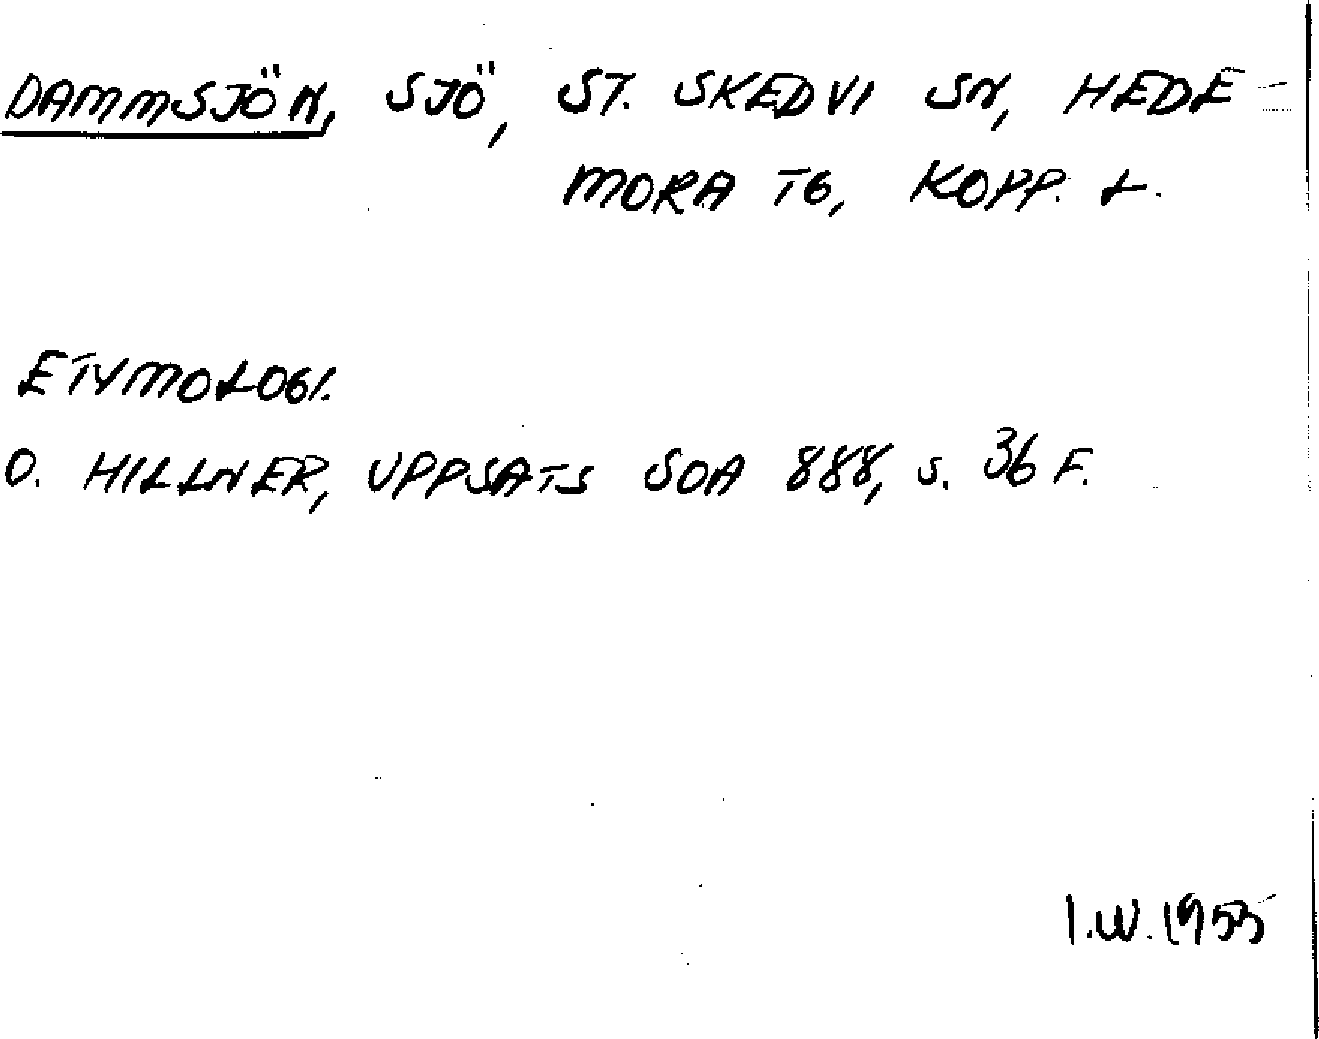 DAMMSJÖN, SJÖ, ST. SKEDVI SN, HEDE-
MORA TG, KOPP. L.
ETYMOLOGI.
O. HILLNER, UPPSATS SOA 888, S. 36 F.
I.W. 1955